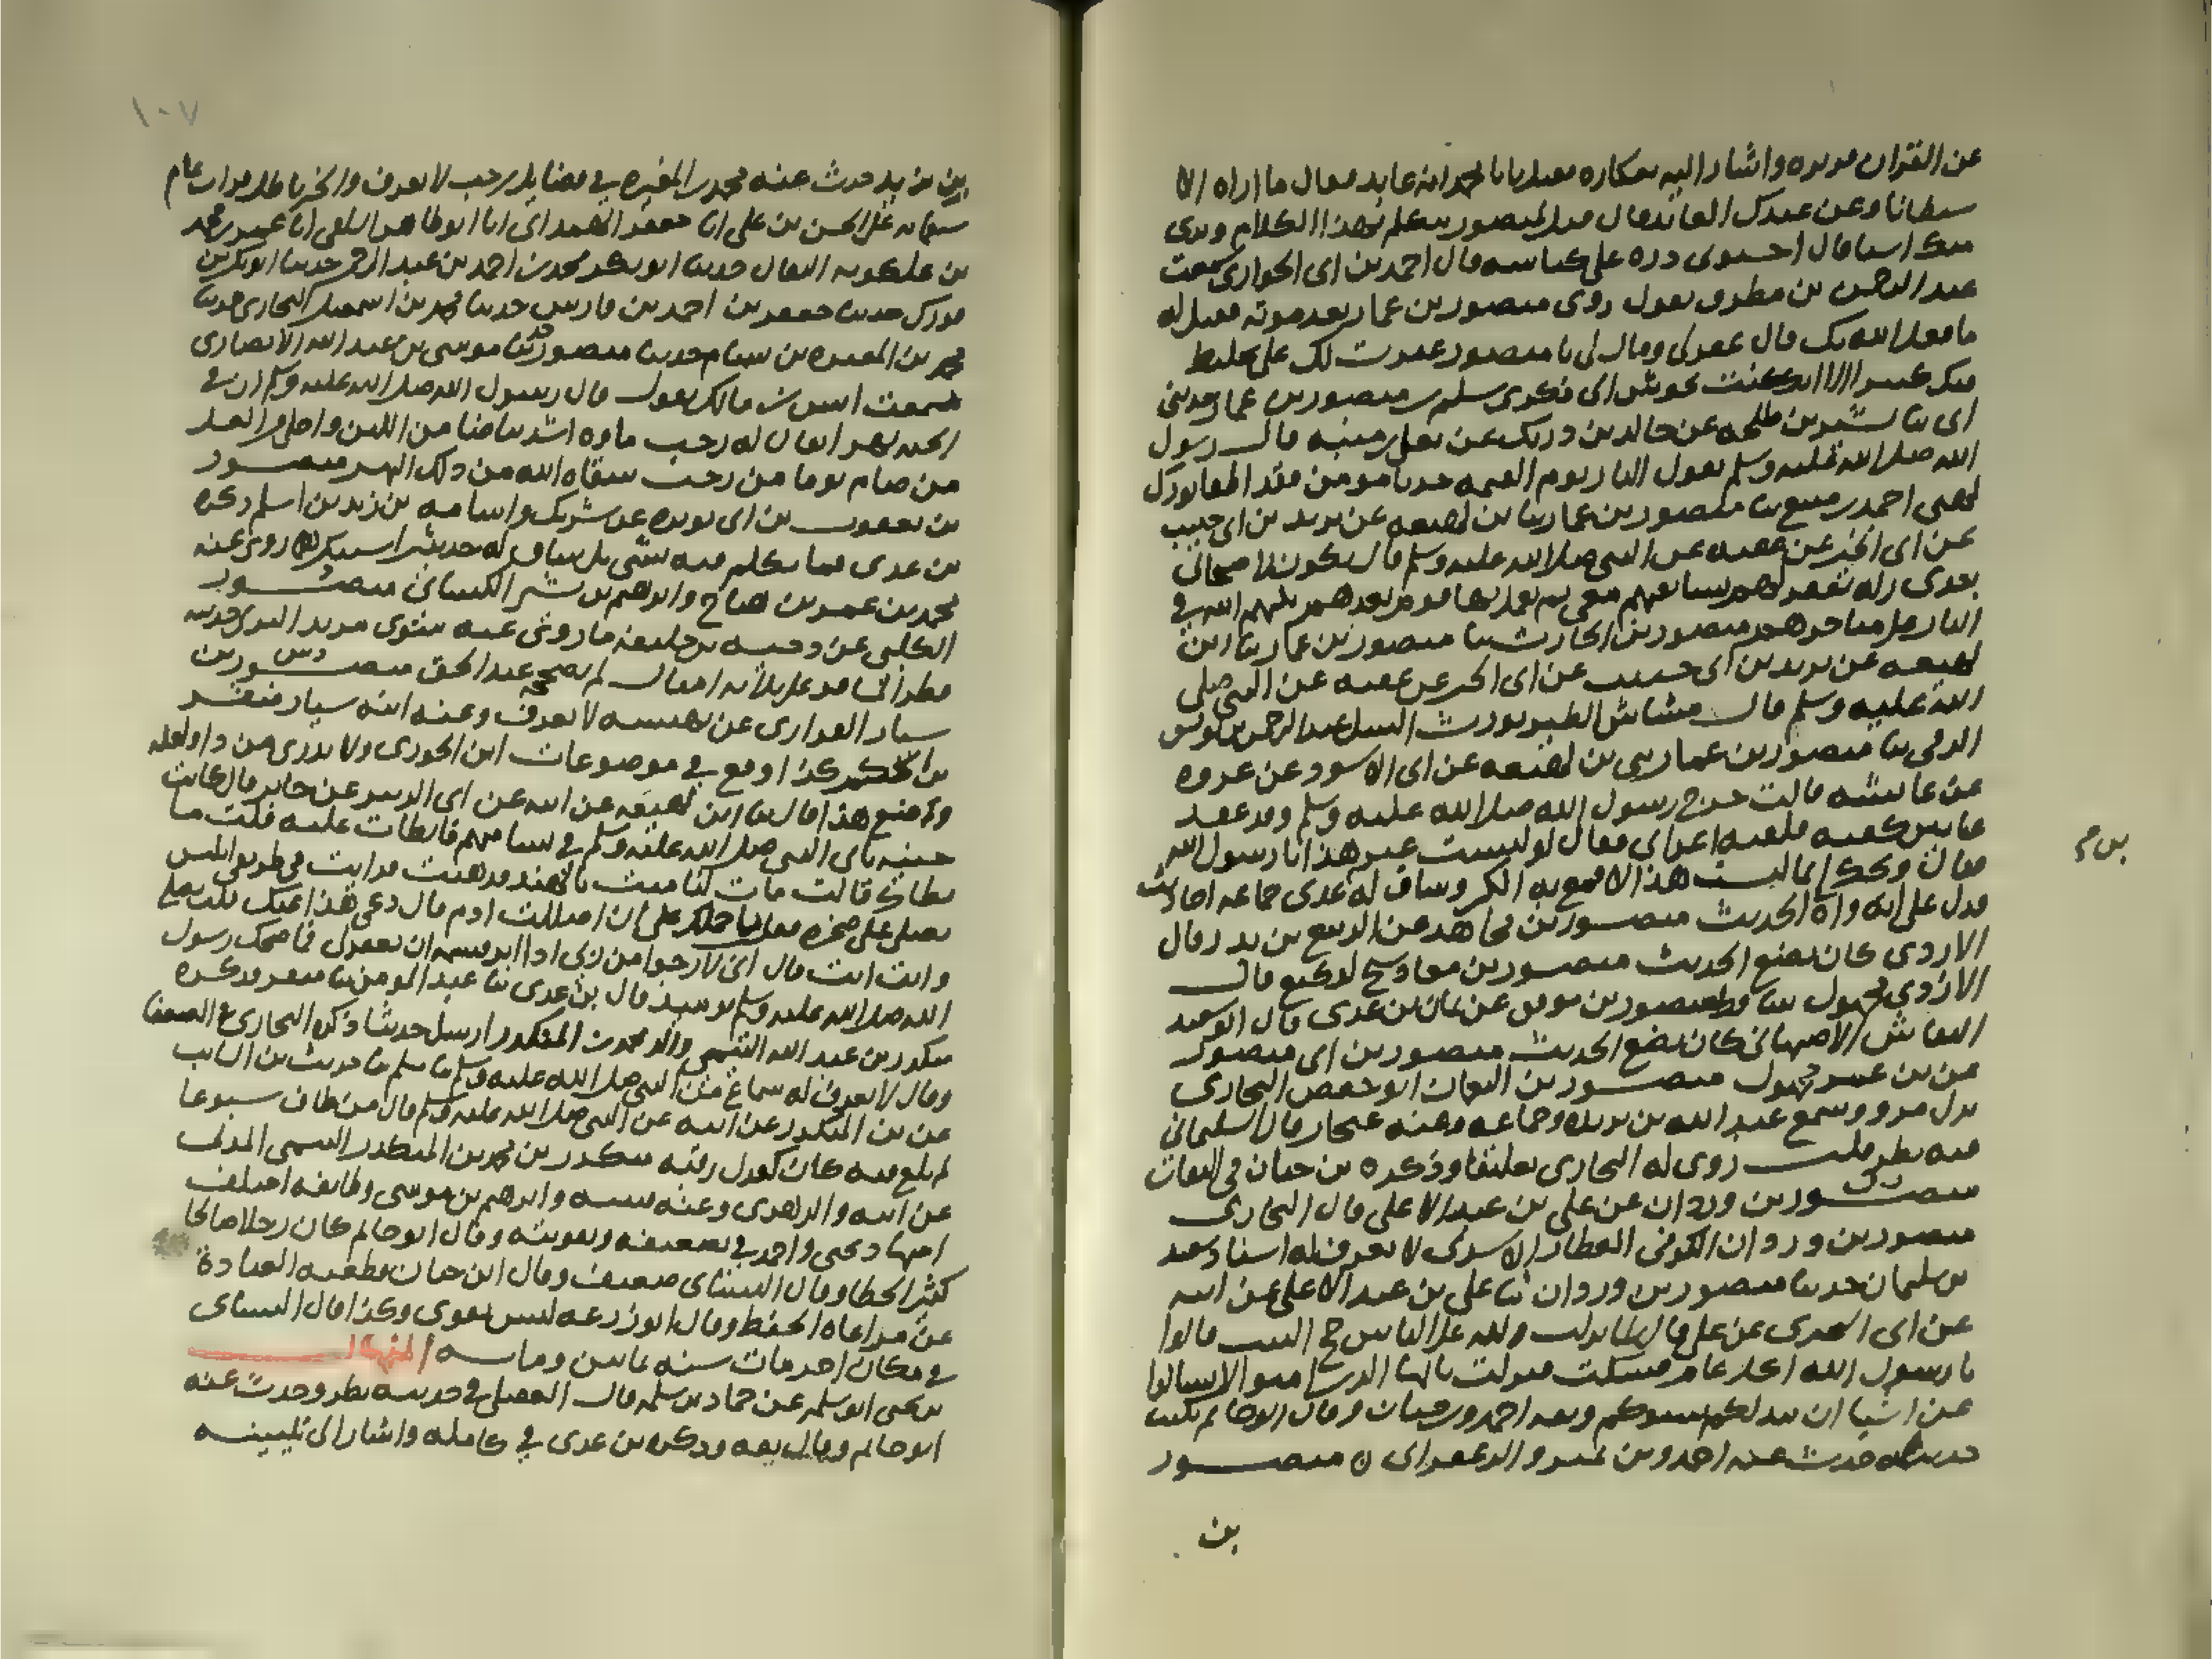 عن القران فزبره واشار اليه بعكازه فقيل يابا محمد انه عابد فقال ما اراه الا
شيطانا وعن عبدك العابد قال قيل لمنصور تتكلم بهذا الكلام ونرى
منك اشيا قال احسبوني دره على كناسه قال احمد بن ابي الحواري سمعت
عبد الرحمن بن مطرف يقول روى منصور بن عمار بعد موته فقيل له
ما فعل الله بك قال غفر لي وقال لي يا منصور غفرت لك على تخليط
منك كثير الا انك كنت تحوش الي ذكري سليم بن منصور بن عمار حدثني
ابي ثنا بشير بن طلحه عن خالد بن دريك عن يعلى بن منيه قال رسول
الله صلى الله عليه وسلم تقول النار يوم القيمه جز يا مومن فقد اطفا نورك
لهبي احمد بن منيع ثنا منصور بن عمار ثنا بن لهيعه عن يزيد بن ابي حبيب
عن ابي الخير عن عقبه عن النبي صلى الله عليه وسلم قال يكون لاصحابي
بعدي زله تغفر لهم بسابقتهم معي ثم يعمل بها قوم بعدهم يكبهم الله في
النار على مناخرهم منصور بن الحارث ثنا منصور بن عمار ثنا ابن
لهيعه عن يزيد بن ابي حبيب عن ابي الخير عن عقبه عن النبي صلى
الله عليه وسلم قال مشاش الطير يورث السل عبد الرحمن بن يونس
الرقي ثنا منصور بن عمار ثني بن لهيعه عن ابي الاسود عن عروه
عن عايشه قالت خرج رسول الله صلى الله عليه وسلم وقد عقد
عبا بين كتفيه فلقيه اعرابي فقال لو لبست غير هذا يا رسول الله
فقال ويحك انما لبست هذا لاقمع به الكبر وساق له بن عدي جماعه احاديث
تدل على انه واه الحديث منصور بن مجاهد عن الربيع بن بدر قال
الازدي كان يضع الحديث منصور بن معاذ شيخ لوكيع قال
الازدي مجهول منصور بن موفق عن يمان بن عدي قال ابو سعيد
النقاش الاصبهاني كان يضع الحديث منصور بن ابي منصور
عن بن عمر مجهول منصور بن النعمان ابو حفص البخاري
نزل مرو وسمع عبد الله بن بريده وجماعه وعنه غنجار قال السليماني
فيه نظر قلت روى له البخاري تعليقا وذكره بن حبان في الثقات
منصور بن وردان عن علي بن عبد الاعلى قال البخاري
منصور بن وردان الكوفي العطار الاسدي لا يعرف له اسناد سعيد
بن سليمان حدثنا منصور بن وردان ثنا علي بن عبد الاعلى عن ابيه
عن ابي البختري عن علي قال لما نزلت ولله على الناس حج البيت قالوا
يا رسول الله اكل عام فسكت فنزلت يا ايها الذين امنوا لا تسالوا
عن اشيا ان تبد لكم تسوكم وثقه احمد وبن حبان وقال ابو حاتم يكتب
حديثه حدث عنه احمد وبن نمير والزعفراني ن منصور
بن
بن
١٠٧
بن يزيد حدث عنه محمد بن المغيره في فضايل رجب لا يعرف والخبر باطل قرات عام
سبعمايه على الحسن بن علي انا جعفر الهمداني انا ابو طاهر السلفي انا محمد
بن علكويه البقال حدثنا ابو بكر محمد بن احمد بن عبد الرحمن حدثنا ابو بكر بن
فورك حدثنا جعفر بن احمد بن فارس حدثنا محمد بن اسمعيل البخاري حدثنا
محمد بن المغيره بن بسام حدثنا منصور حدثنا موسى بن عبد الله الانصاري
سمعت انس بن مالك يقول قال رسول الله صلى الله عليه وسلم ان في
الجنه نهرا يقال له رجب ماوه اشد بياضا من اللبن واحلى من العسل
من صام يوما من رجب سقاه الله من ذلك النهر منصور
بن يعقوب بن ابي نويره عن شريك واسامه بن زيد بن اسلم ذكره
بن عدي فما تكلم فيه بشي بل ساق له حديثين استنكرهما روى عنه
محمد بن عمر بن هياج وابراهيم بن بشر الكسائي منصور
الكلبي عن دحيه بن خليفه ما روى عنه سوى مرثد اليزني حديثه
فطر اني مر على ثلاثه اميال لم يصححه عبد الحق منصور بن
سيار الفزاري عن بهيسه لا يعرف وعنه ابنه سيار منقر
بن الحكم كذا وقع في موضوعات ابن الجوزي ولا يدرى من ذا ولعله
وضع هذا قال ثنا ابن لهيعه عن ابيه عن ابي الزبير عن جابر قال كانت
جنيه تاتي النبي صلى الله عليه وسلم في نسا منهم فابطات عليه فقلت ما
بطا بك قالت مات لنا ميت بالهند فذهبت فرايت في طريقي ابليس
يصلي على صخره فقلت ما حملك على ان اضللت ادم قال دعي هذا عنك قلت تصلي
وانت انت قال اني لارجوا من ربي اذا ابر قسمه ان يغفر لي فما ضحك رسول
الله صلى الله عليه وسلم يوميذ قال بن عدي ثنا عبد المومن ثنا منقر فذكره
منكدر بن عبد الله التيمي والد محمد بن المنكدر ارسل حديثا ذكره البخاري في الضعفا
وقال لا يعرف له سماع من النبي صلى الله عليه وسلم ثنا مسلم ثنا حريث بن السايب
عن بن المنكدر عن ابيه عن النبي صلى الله عليه وسلم قال من طاف سبوعا
لم يلغ فيه كان كعدل رقبه منكدر بن محمد بن المنكدر التيمي المدني
عن ابيه والزهري وعنه قتيبه وابرهيم بن موسى وطايفه اختلف
اجتهاد يحيى واحمد في تضعيفه وتقويته وقال ابو حاتم كان رجلا صالحا
كثير الخطا وقال النسائي ضعيف وقال ابن حبان قطعته العبادة
عن مراعاه الحفظ وقال ابو زرعه ليس بقوي وكذا قال النسائي
في مكان اخر مات سنه ثمانين ومايه المنهال
بن يحيى ابو سلمه عن حماد بن سلمه قال العقيلي في حديثه نظر وحدث عنه
ابو حاتم وقال ثقه وذكره بن عدي في كامله واشار الى تليينه